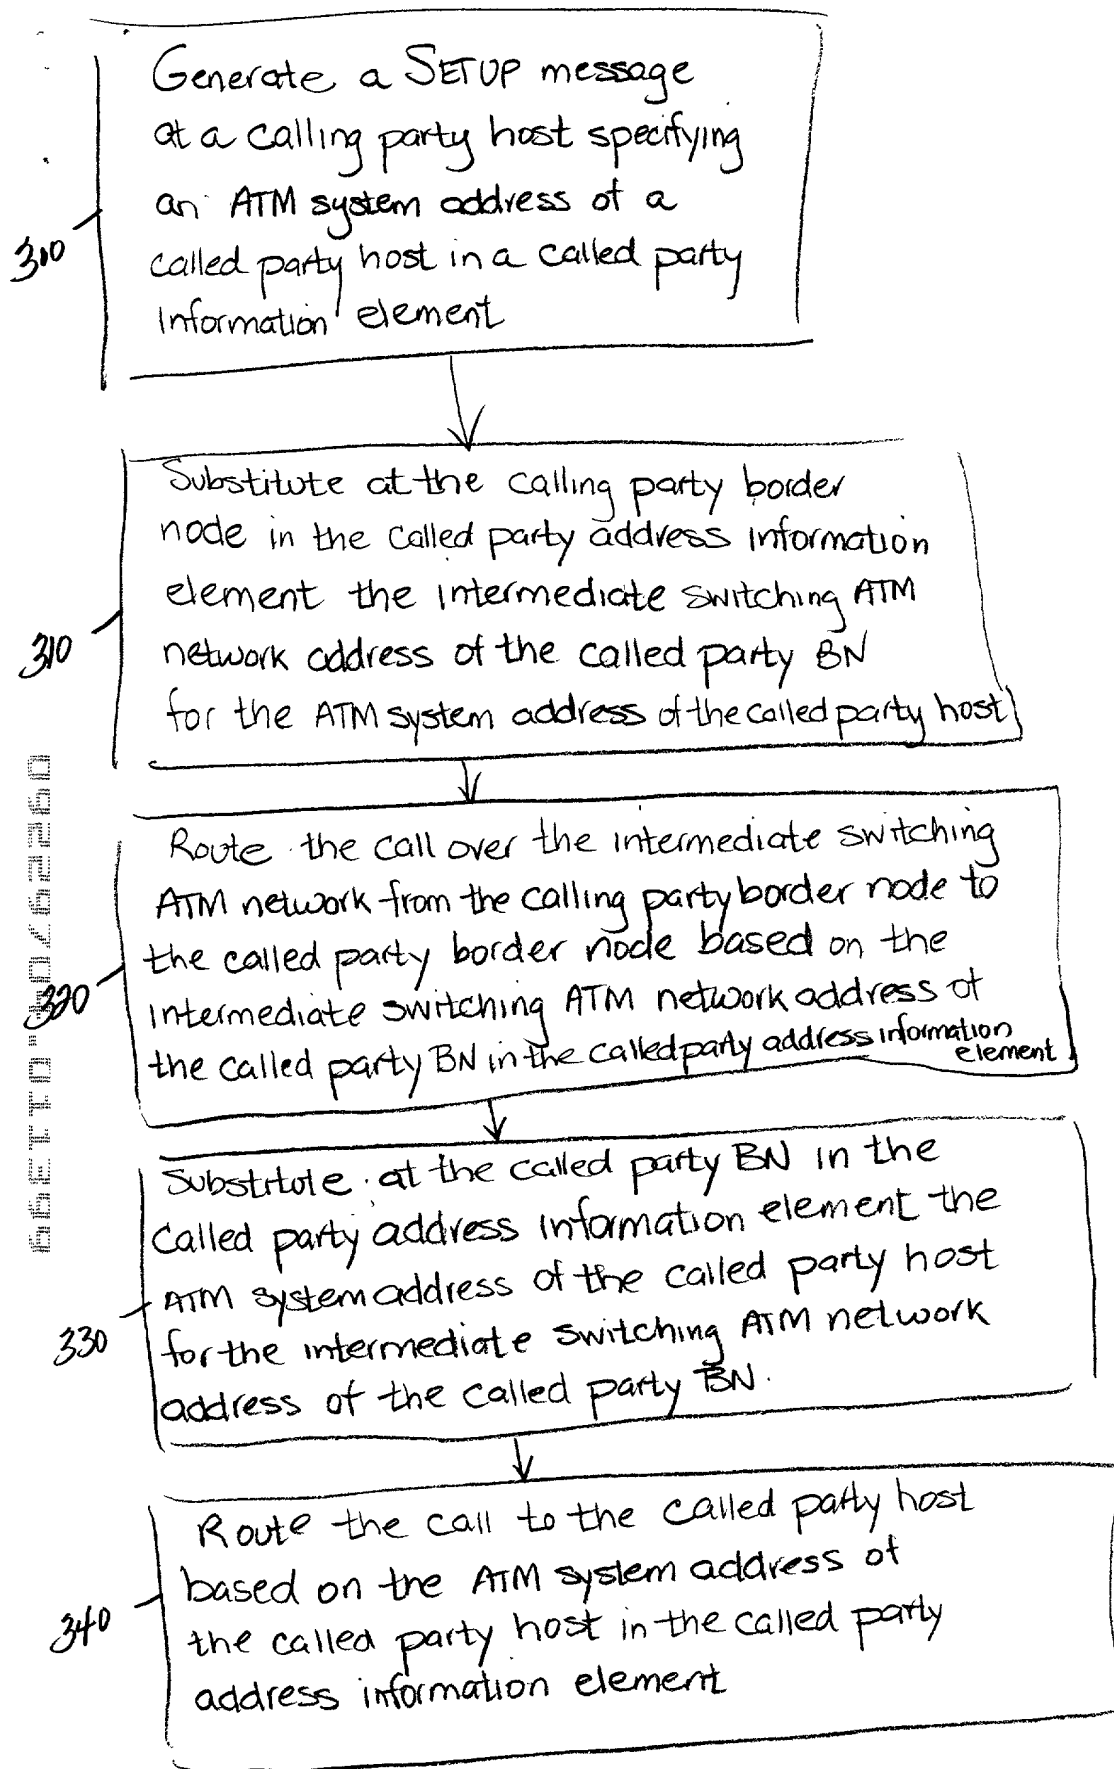 Generate a SETUP message
at a calling party host specifying
an ATM system address of a
called party host in a called party
information element
Substitute at the calling party border
node in the called party address information
element the intermediate switching ATM
network address of the called party BN
for the ATM system address of the called party host
310
Route the call over the intermediate switching
ATM network from the calling party border node to
the called party border node based on the
320
intermediate switching ATM network address of
the called party BN in the called party address information
element
Substitute at the called party BN in the
called party address information element the
ATM system address of the called party host
330
for the intermediate switching ATM network
address of the called party BN.
Route the call to the called party host
based on the ATM system address of
340
the called party host in the called party
address information element